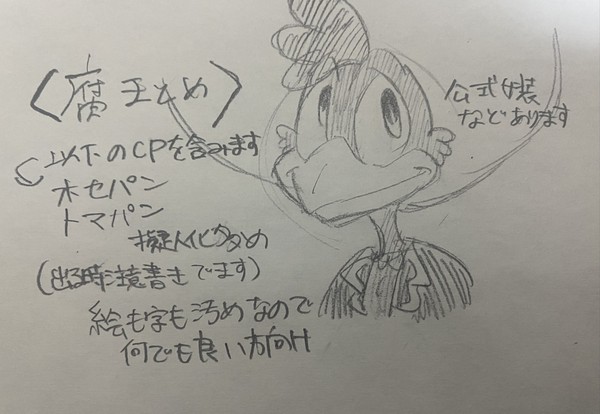 〈腐まとめ〉
以下のCPを含みます
ホセパン
トマパン
擬人化多め
(出る時注意書きでます)
絵も字も汚めなので
何でも良い方向け
公式女装
などあります